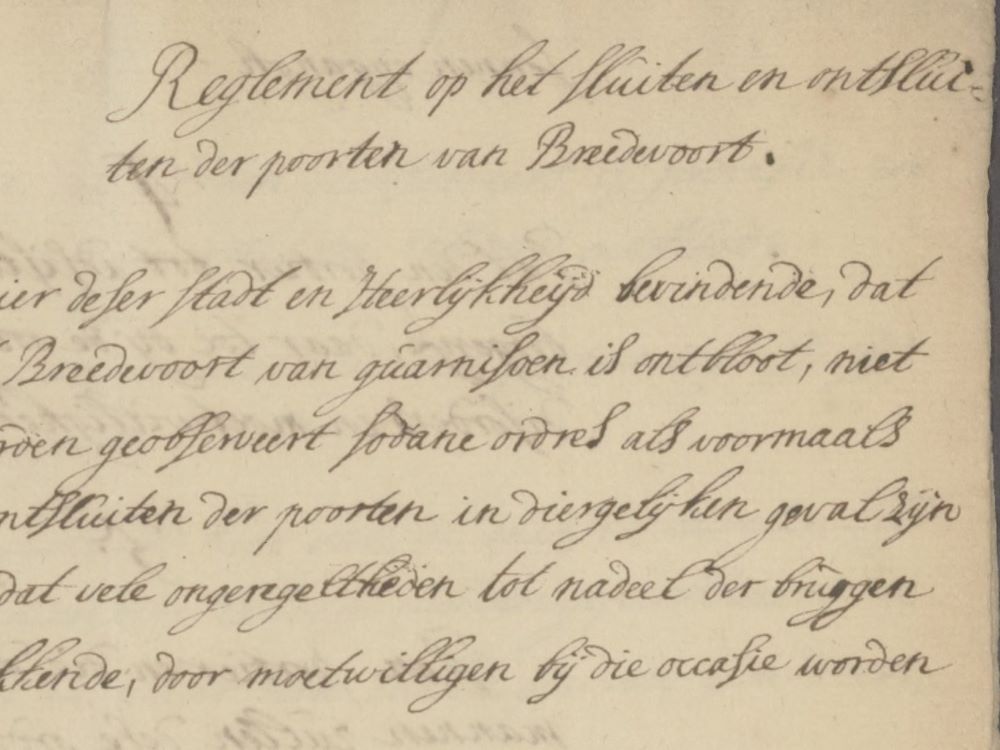 Reglement op het sluiten en ontslui-
ten der poorten van Breedevoort.
ier deser stadt en Heerlijkheijd bevindende, dat
Breedevoort van guarnisoen is ontbloot, niet
rden geobserveert sodane ordres als voormaals
ntsluiten der poorten in diergelijken geval zijn
dat vele ongeregeltheden tot nadeel der bruggen
kkende, door moetwilligen bij die occasie worden